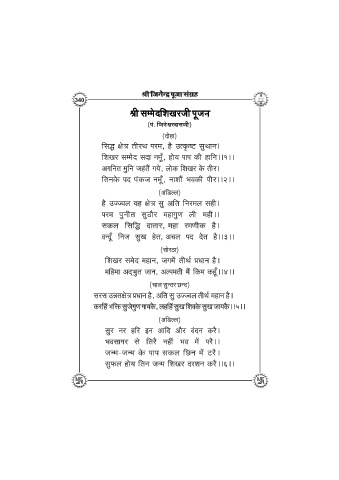 श्री जिनेन्द्र पूजा संग्रह
340
श्री सम्मेदशिखरजी पूजन
(पं. जिनेश्वरदासजी)
(दोहा)
सिद्ध क्षेत्र तीरथ परम, है उत्कृष्ट सुथान।
शिखर सम्मेद सदा नमूँ, होय पाप की हानि।।१।।
अगनित मुनि जहंतैं गये, लोक शिखर के तीर।
तिनके पद पंकज नमूँ, नाशौं भवकी पीर।।२।।
(अडिल्ल)
है उज्ज्वल यह क्षेत्र सु अति निरमल सही।
परम पुनीत सुठौर महागुण ली मही।।
सकल सिद्धि दातार, महा रमणीक है।
वन्दूँ निज सुख हेत, अचल पद देत है।।३।।
(सोरठा)
शिखर समेद महान, जगमें तीर्थ प्रधान है।
महिमा अद्भुत जान, अल्पमती मैं किम कहूँ।।४।।
(चाल सुन्दर छन्द)
सरस उन्नतक्षेत्र प्रधान है, अति सु उज्ज्वल तीर्थ महान है।
करहिं भक्ति सु जे गुण गायकै, लहहिं सुख शिवके सुख जायकै।।५।।
(अडिल्ल)
सुर नर हरि इन आदि और वंदन करै।
भवसागर से तिरै नहीं भव में परै।।
जन्म-जन्म के पाप सकल छिन में टरै।
सुफल होय तिन जन्म शिखर दरशन करै।।६।।